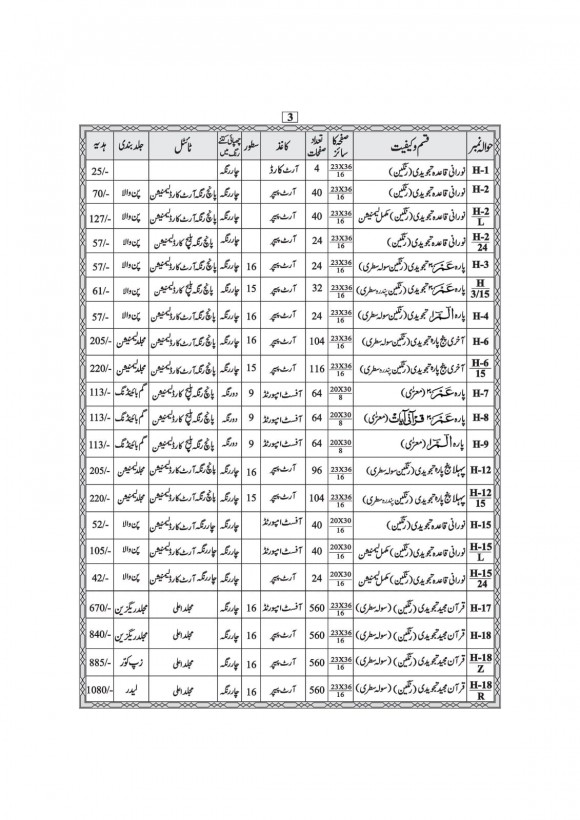 3
حوالہ نمبر قسم و کیفیت صفحے کا سائز تعداد صفحات کاغذ سطور چھپائی کتنے رنگ میں ٹائٹل جلد بندی ہدیہ
H-1 نورانی قاعدہ تجویدی (رنگین) 23X36/16 4 آرٹ کارڈ چار رنگہ 25/-
H-2 نورانی قاعدہ تجویدی (رنگین) 23X36/16 40 آرٹ پیپر چار رنگہ پانچ رنگہ آرٹ کارڈ لیمنیشن پن والا 70/-
H-2/L نورانی قاعدہ تجویدی (رنگین) مکمل لیمنیشن 23X36/16 40 آرٹ پیپر چار رنگہ پانچ رنگہ آرٹ کارڈ لیمنیشن پن والا 127/-
H-2/24 نورانی قاعدہ تجویدی (رنگین) 23X36/16 24 آرٹ پیپر چار رنگہ پانچ رنگہ کارڈ لیمنیشن پن والا 57/-
H-3 پارہ عمّ تجویدی (رنگین سولہ سطری) 23X36/16 24 آرٹ پیپر 16 چار رنگہ پانچ رنگہ آرٹ کارڈ لیمنیشن پن والا 57/-
H/3/15 پارہ عمّ تجویدی (رنگین پندرہ سطری) 23X36/16 32 آرٹ پیپر 15 چار رنگہ پانچ رنگہ کارڈ لیمنیشن پن والا 61/-
H-4 پارہ الٓمّٓ تجویدی (رنگین سولہ سطری) 23X36/16 24 آرٹ پیپر 16 چار رنگہ پانچ رنگہ آرٹ کارڈ لیمنیشن پن والا 57/-
H-6 آخری پنج پارہ تجویدی (رنگین سولہ سطری) 23X36/16 104 آرٹ پیپر 16 چار رنگہ پانچ رنگہ آرٹ کارڈ لیمنیشن مجلد لیمنیشن 205/-
H-6/15 آخری پنج پارہ تجویدی (رنگین پندرہ سطری) 23X36/16 116 آرٹ پیپر 15 چار رنگہ پانچ رنگہ آرٹ کارڈ لیمنیشن مجلد لیمنیشن 220/-
H-7 پارہ عمّ (معریٰ) 20X30/8 64 آفسٹ امپورٹڈ 9 دو رنگہ پانچ رنگہ کارڈ لیمنیشن گم بائینڈنگ 113/-
H-8 پارہ عمّ قرآنی آیات (معریٰ) 20X30/8 64 آفسٹ امپورٹڈ 9 دو رنگہ پانچ رنگہ کارڈ لیمنیشن گم بائینڈنگ 113/-
H-9 پارہ الٓمّٓ (معریٰ) 20X30/8 64 آفسٹ امپورٹڈ 9 دو رنگہ پانچ رنگہ کارڈ لیمنیشن گم بائینڈنگ 113/-
H-12 پہلا پنج پارہ تجویدی (رنگین سولہ سطری) 23X36/16 96 آرٹ پیپر 16 چار رنگہ پانچ رنگہ آرٹ کارڈ لیمنیشن مجلد لیمنیشن 205/-
H-12/15 پہلا پنج پارہ تجویدی (رنگین پندرہ سطری) 23X36/16 104 آرٹ پیپر 15 چار رنگہ پانچ رنگہ آرٹ کارڈ لیمنیشن مجلد لیمنیشن 220/-
H-15 نورانی قاعدہ تجویدی (رنگین) 20X30/16 40 آفسٹ امپورٹڈ چار رنگہ چار رنگہ آرٹ کارڈ لیمنیشن پن والا 52/-
H-15/L نورانی قاعدہ تجویدی (رنگین) مکمل لیمنیشن 20X30/16 40 آفسٹ امپورٹڈ چار رنگہ چار رنگہ آرٹ کارڈ لیمنیشن پن والا 105/-
H-15/24 نورانی قاعدہ تجویدی (رنگین) مکمل لیمنیشن 20X30/16 24 آرٹ پیپر چار رنگہ چار رنگہ آرٹ کارڈ لیمنیشن پن والا 42/-
H-17 قرآن مجید تجویدی (رنگین) (سولہ سطری) 23X36/16 560 آفسٹ امپورٹڈ 16 چار رنگہ مجلد اعلی مجلد ریگزین 670/-
H-18 قرآن مجید تجویدی (رنگین) (سولہ سطری) 23X36/16 560 آرٹ پیپر 16 چار رنگہ مجلد اعلی مجلد ریگزین 840/-
H-18/Z قرآن مجید تجویدی (رنگین) (سولہ سطری) 23X36/16 560 آرٹ پیپر 16 چار رنگہ مجلد اعلی زپ کور 885/-
H-18/R قرآن مجید تجویدی (رنگین) (سولہ سطری) 23X36/16 560 آرٹ پیپر 16 چار رنگہ مجلد اعلی لیدر 1080/-